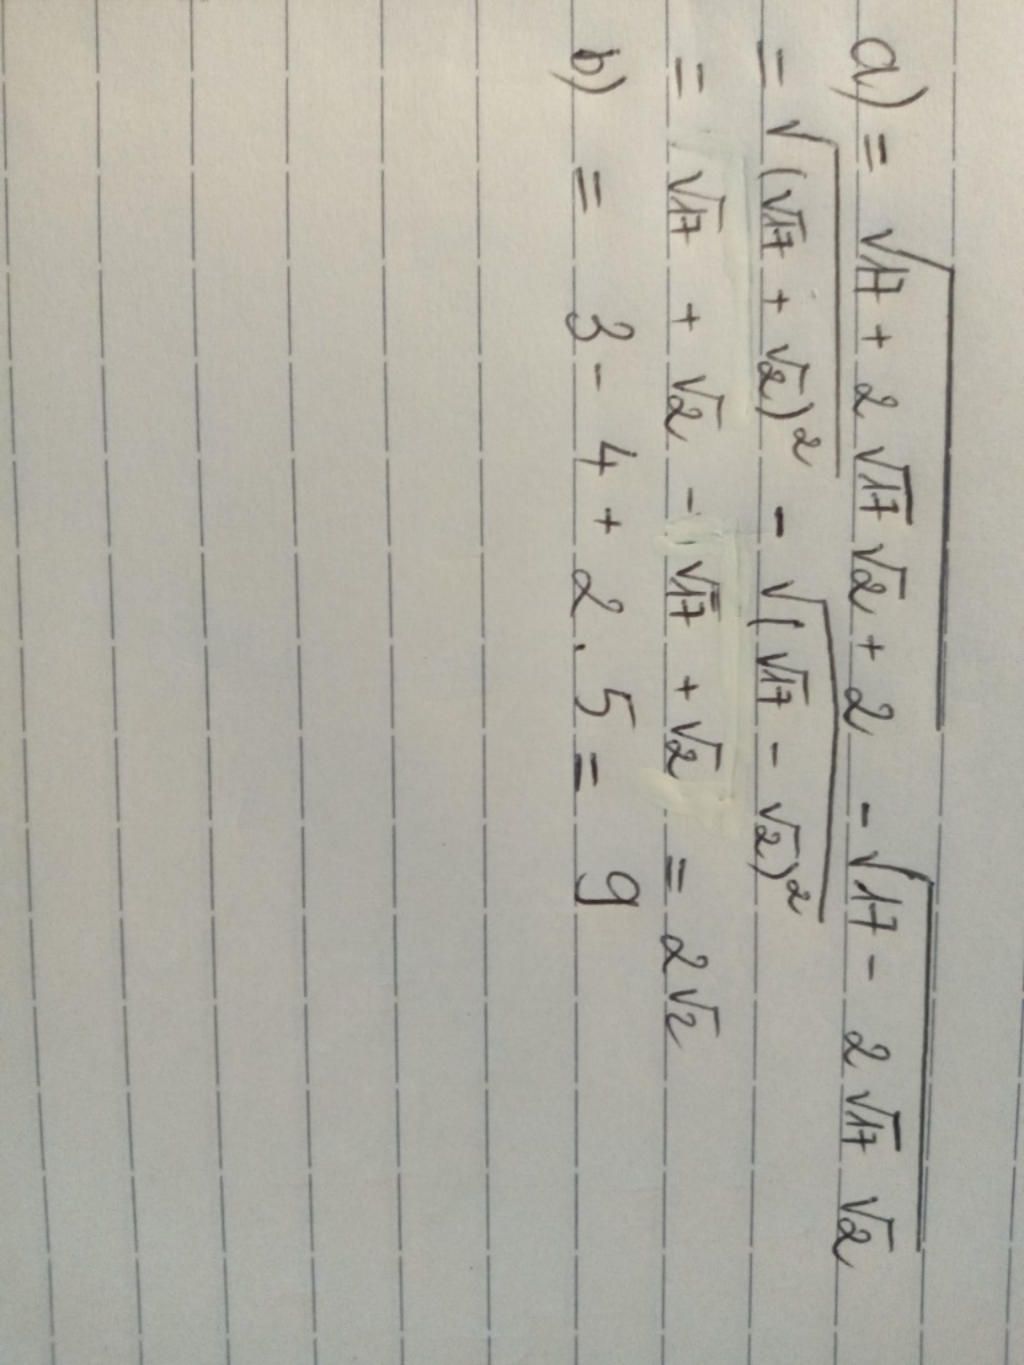 a) = √(17 + 2√17√2 + 2) - √(17 - 2√17√2)
= √((√17 + √2)²) - √((√17 - √2)²)
= √17 + √2 - √17 + √2 = 2√2
b) = 3 - 4 + 2.5 = 9